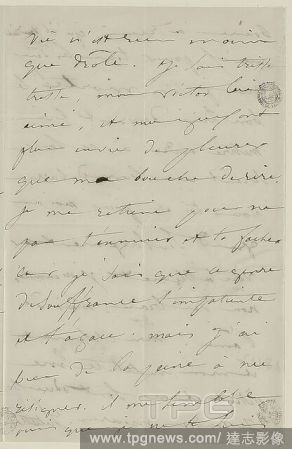 vie n'est rien moins
que drôle. Je suis triste
triste, mon Victor bien
aimé, et mes yeux ont
plus envie de pleurer
que ma bouche de rire.
Je me retiens pour ne
pas t'ennuyer et te fâcher
car je sais que ce genre
de souffrance t'impatiente
et t'agace. mais j'ai
peu de la peine à me
résigner. il me semble
que je ne te
TPG
www.tpgnews.com / 達志影像